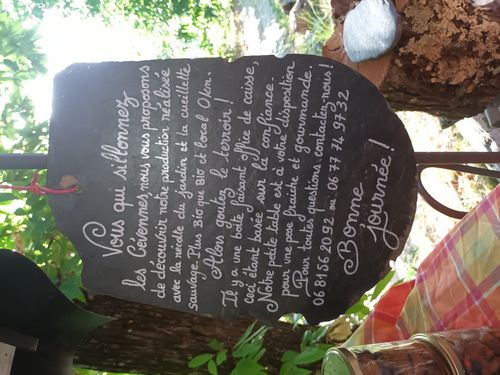 Vous qui sillonnez
les Cévennes, nous vous proposons
de découvrir notre production réalisée
avec la récolte du jardin et la cueillette
sauvage. Plus Bio que Bio et local 0km.
Alors goutez le terroir !
Il y a une boîte faisant office de caisse,
ceci étant basée sur la confiance.
Notre petite table est à votre disposition
pour une pose fraîche et gourmande
Pour toutes questions contactez-nous !
06 81 56 20 92 ou 06 77 74 97 32
Bonne
journée !